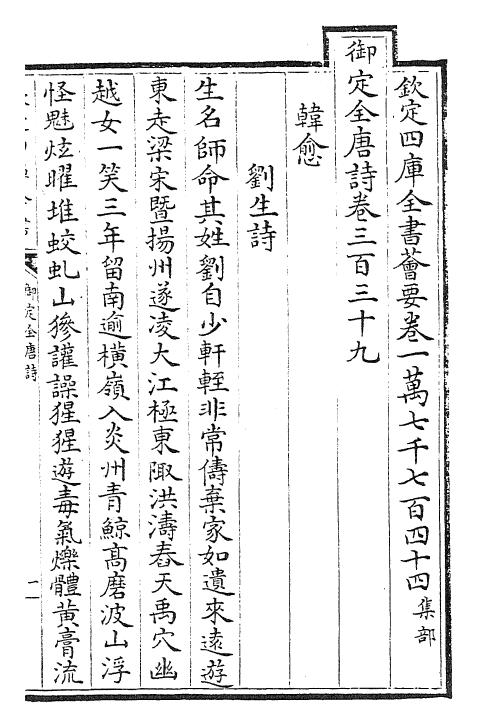 欽定四庫全書薈要卷一萬七千七百四十四 集部
御定全唐詩卷三百三十九
韓愈
劉生詩
生名師命其姓劉自少軒輊非常儔棄家如遺來遠遊
東走梁宋暨揚州遂凌大江極東陬洪濤舂天禹穴幽
越女一笑三年留南逾橫嶺入炎州青鯨高磨波山浮
怪魅炫曜堆蛟虬山㺑讙譟猩猩遊毒氣爍體黄膏流
御定全唐詩
一